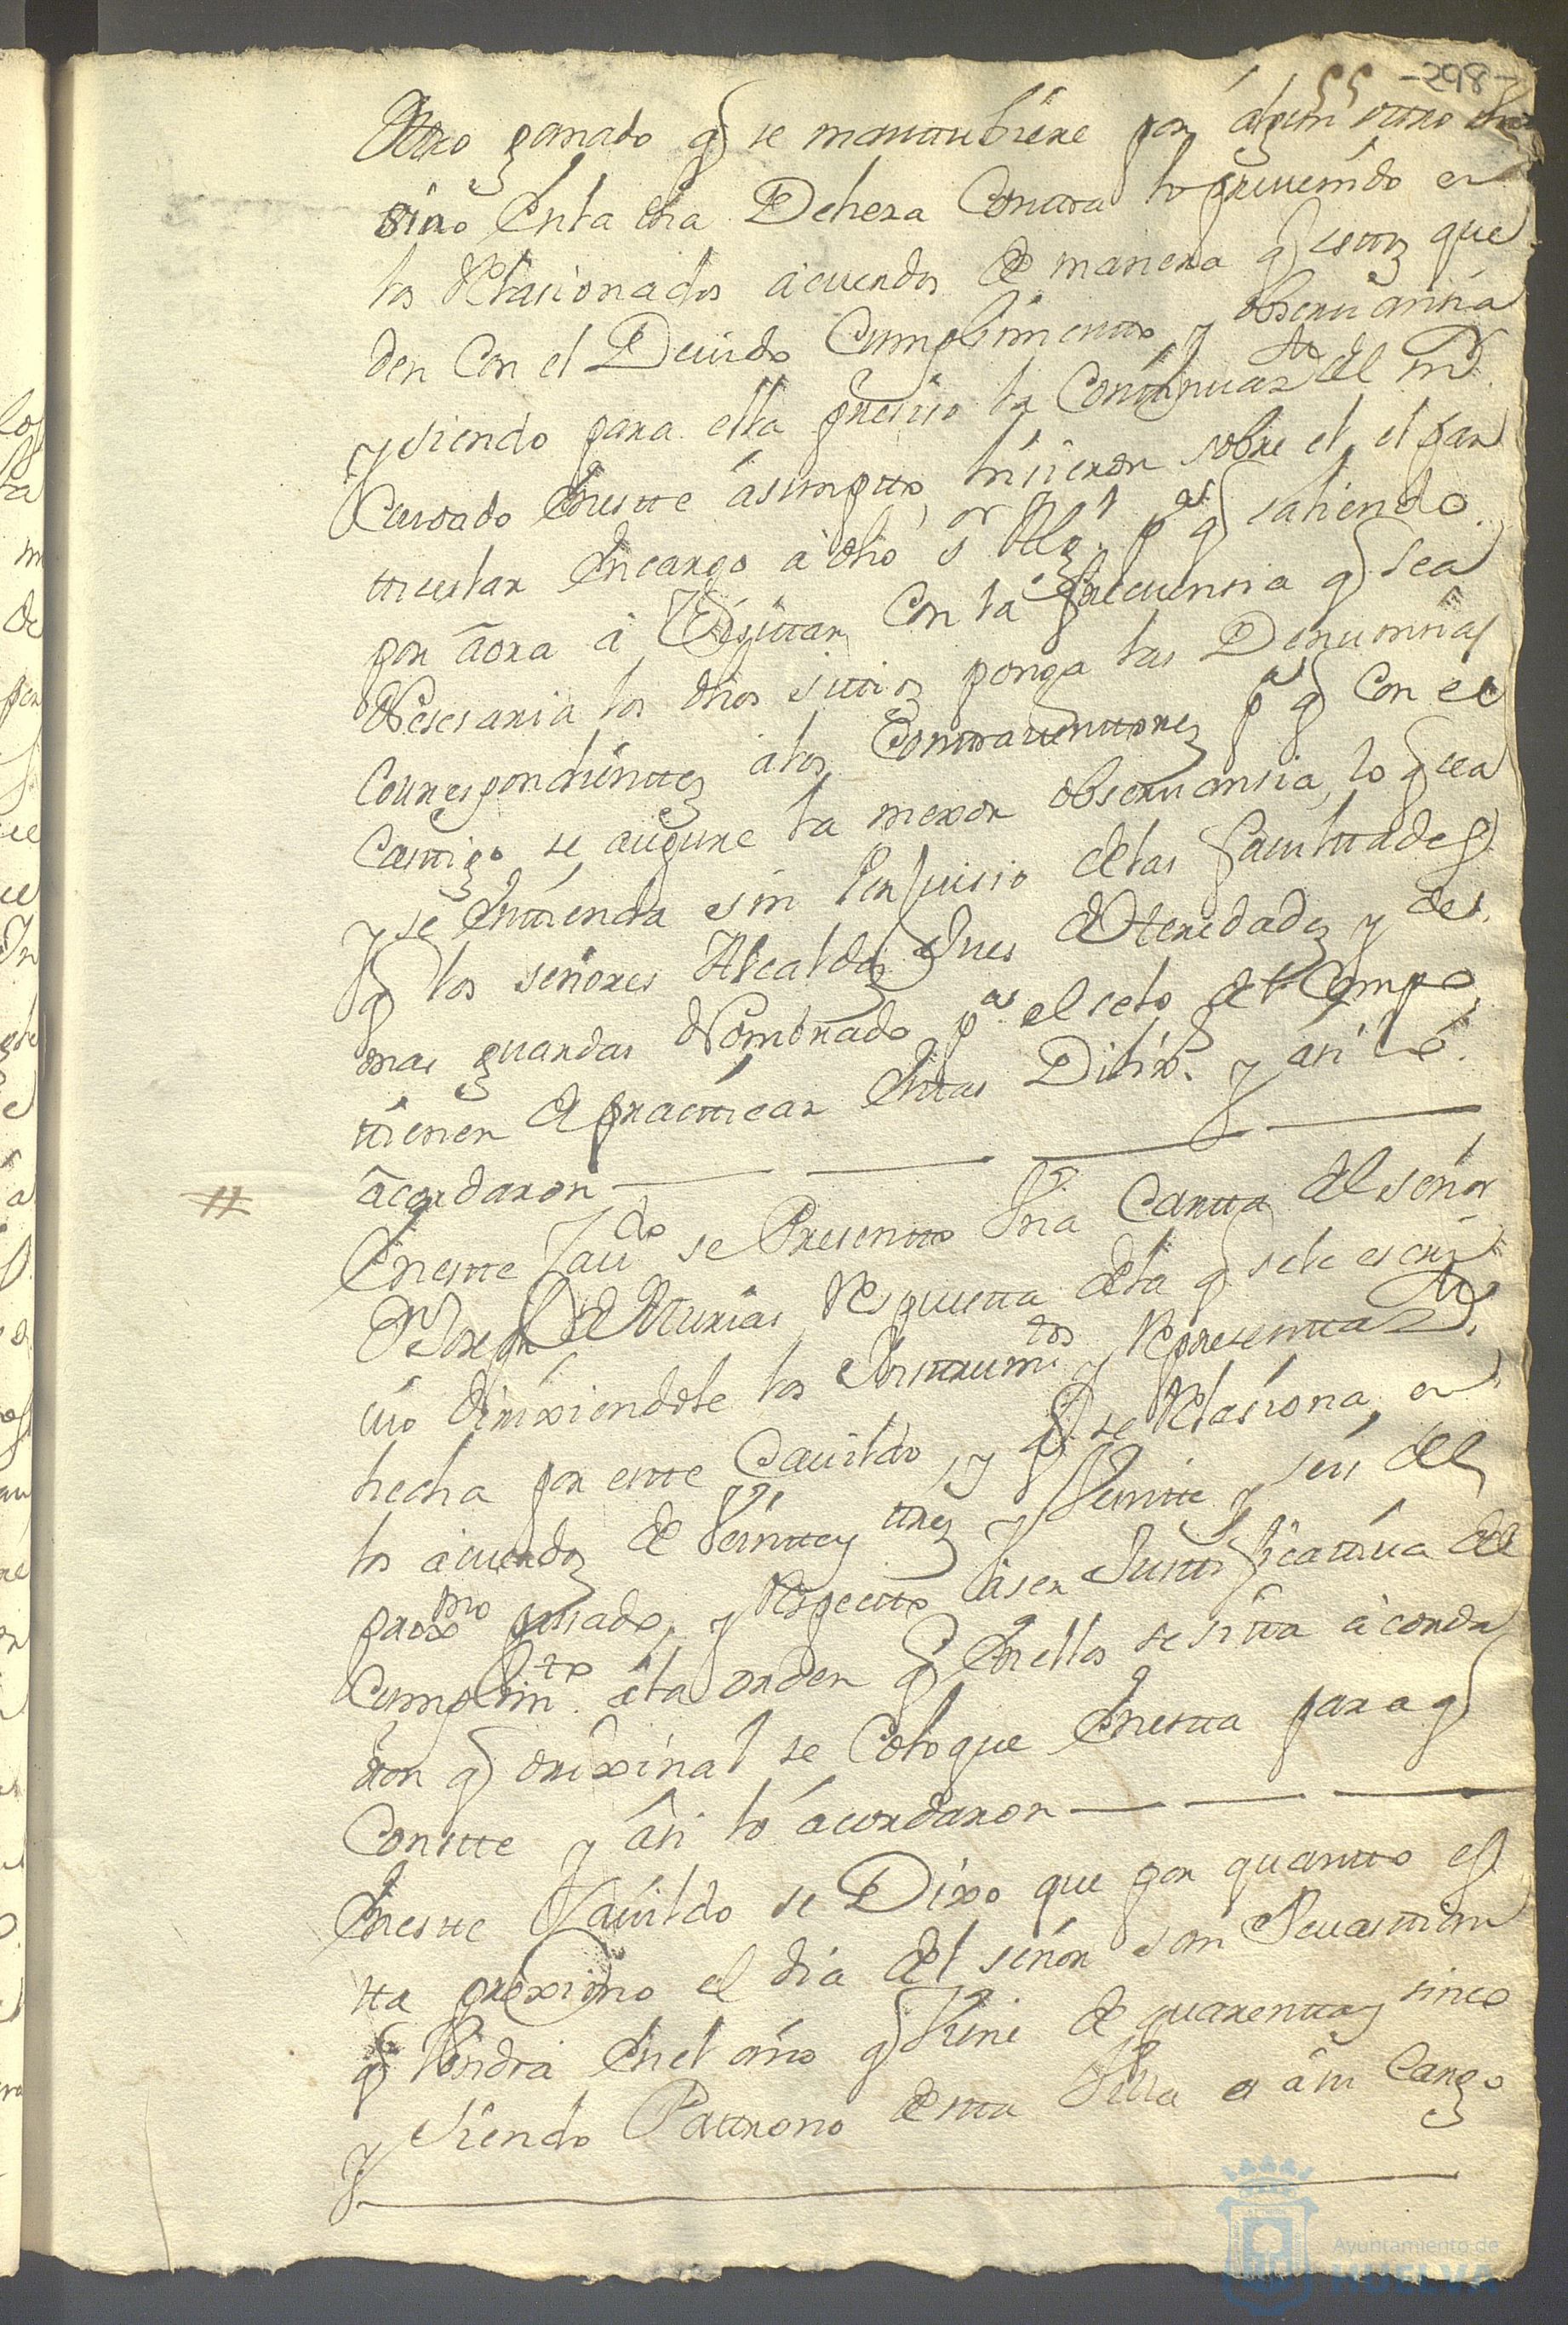 55 -298-
Otro ganado q se mantubiere por algun otro
sino enla dha Dehera Contra lo preuenido en
los Relasionados acuerdos de manera q estos que
den Con el Deuido Cumplimiento y obseruansia
y siendo para ella presiso la Continuaz.on del mr.
Cuidado eneste asumpto, hisieron sobre el, el par
ticular encargo a dho s.or p.a q saliendo
por aora a Visittar Con la frecuensia q sea
Nesesaria los dhos sitios ponga las Denunsias
Correspondientes alos Contrauentores p.a q Con el
Castigo se asegure la mexor obseruansia, lo q sea
y se entienda sin Perjuisio delas facultades
q los señores Alcaldes Jues de Heredades y de
mas guardas Nombrado p.a el selo del Campo
tienen de practicar estas Dilix.s y asi lo
acordaron
# Eneste Cau.do se Presento Vna Cartta del señor
Dn Joseph de Asturias Respuesta dela q se le escri
uio dirixiendole los Instrum.tos y Representaz.on
hecha por este Cauildo, y q se Relasiona en
los acuerdos de Veintey tres y Veinte y seis del
prox.mo pasado, y Respecto a ser Justificatiua del
Cumplim.to dela orden q enellos se sita acorda
ron q orixinal se Coloque enesta para q
Conste y asi lo acordaron
Eneste Cauildo se Dixo que por quanto es
ta proximo el dia del señor san Seuastian
q Vendra enel año q Viene de quarentay sinco
y siendo Patrono desta Villa es a su Cargo
Ayuntamiento de
HUELVA